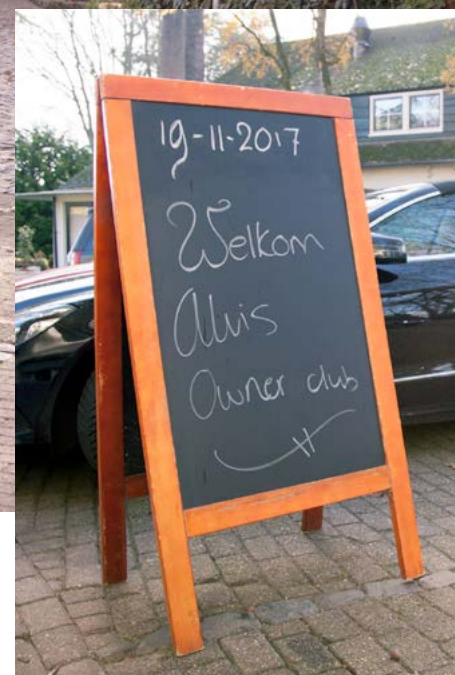 19-11-2017
Welkom
Alvis
Owner club